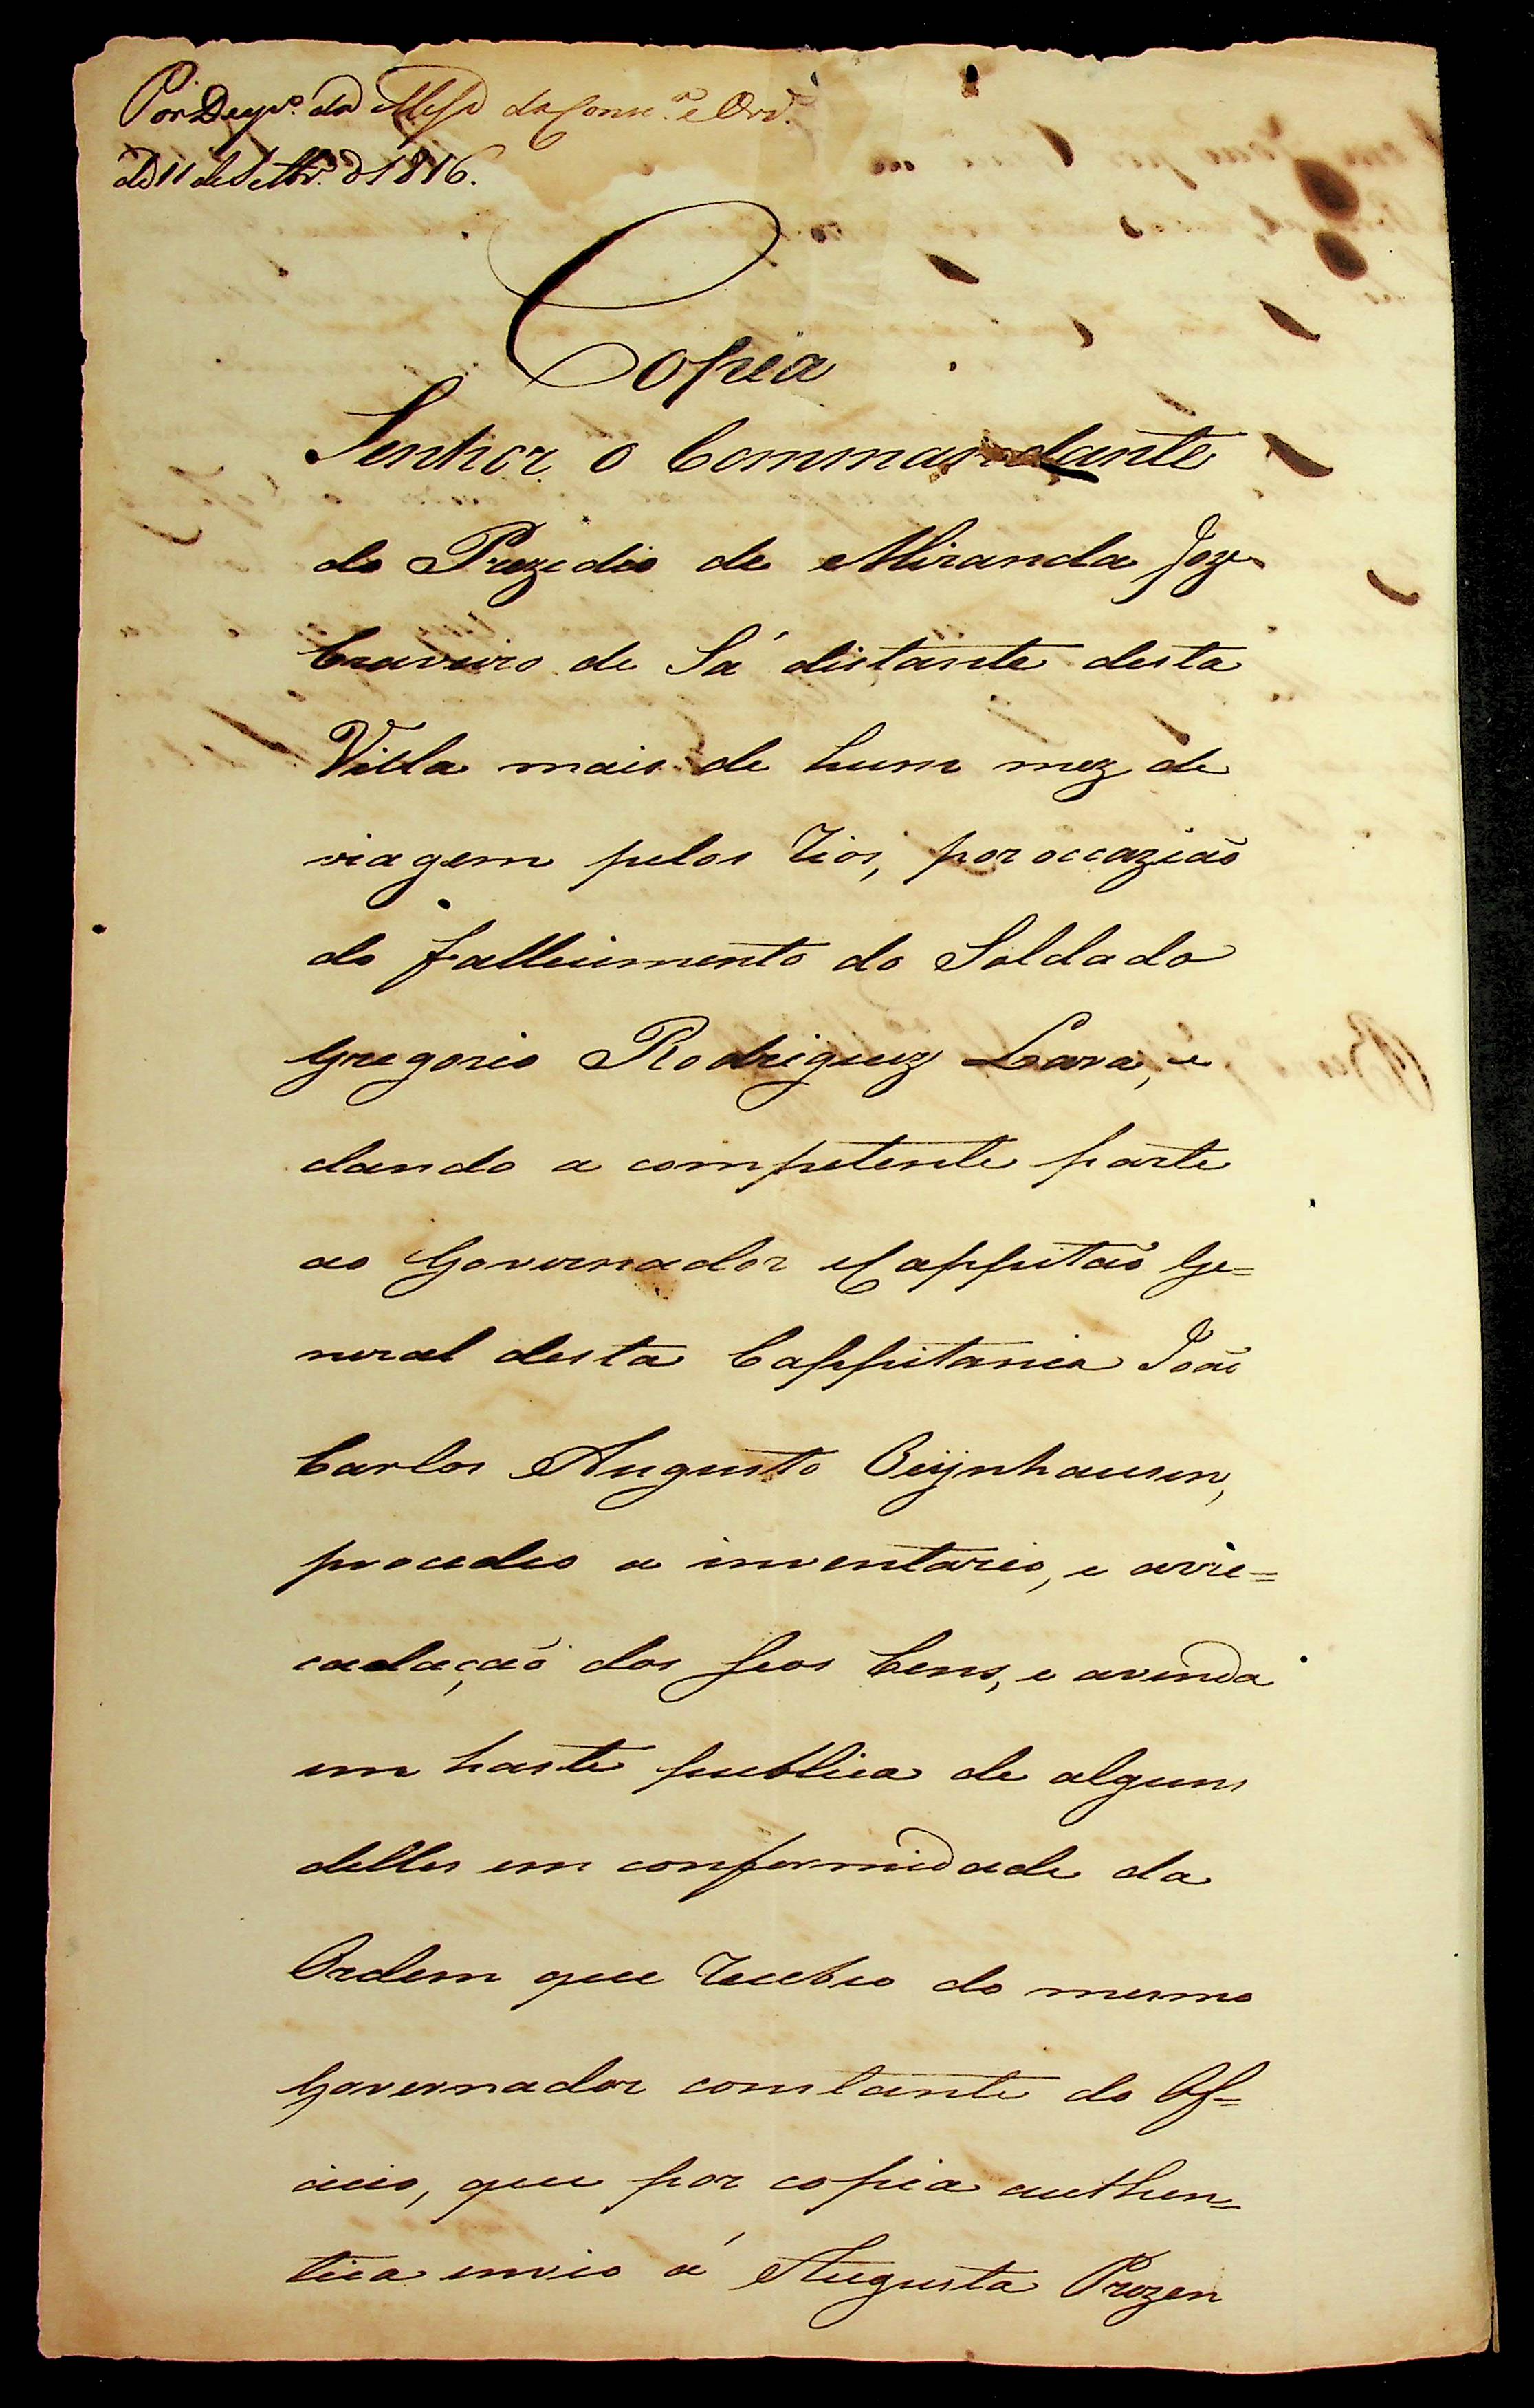 Por Desp.º da Mesa da Consc.ª e Ord.ˢ
de 11 de Setbr.º d 1816.
Copia
Senhor o Commandante
do Prezidio de Miranda Joze
Craveiro de Sá distante desta
Villa mais de hum mez de
viagem pelos rios, por occazião
do fallecimento do Soldado
Gregorio Rodriguez Lara, e
dando a competente parte
ao Governador e Cappitão Ge=
neral desta Cappitania João
Carlos Augusto Oeÿnhausen,
procedeo a inventario, e arre=
cadação dos seos bens, e avenda
em haste publica de alguns
delles em conformidade da
Ordem que recebeo do mesmo
Governador constante do Of=
icio, que por copia authen=
tica envio á Augusta Prezen